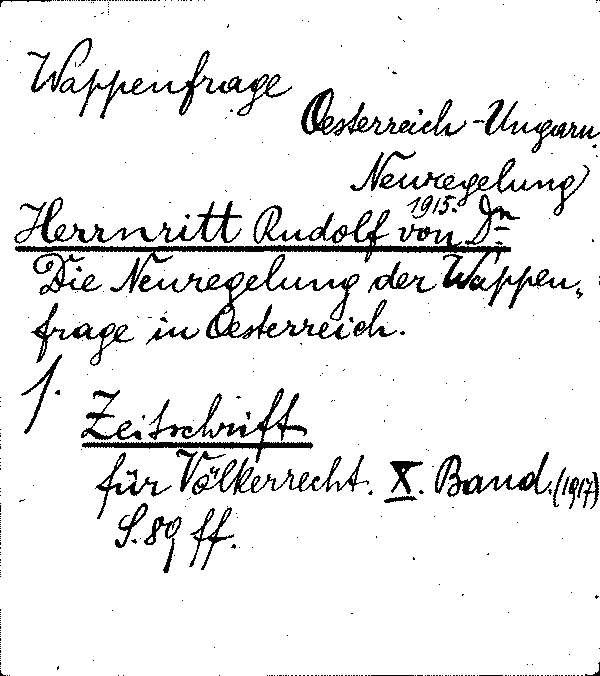 Wappenfrage
Oesterreich-Ungarn.
Neuregelung
1915.
Herrnritt Rudolf von Dr.
Die Neuregelung der Wappen-
frage in Oesterreich.
f.
Zeitschrift
für Völkerrecht. X. Band. (1917)
S. 89 ff.